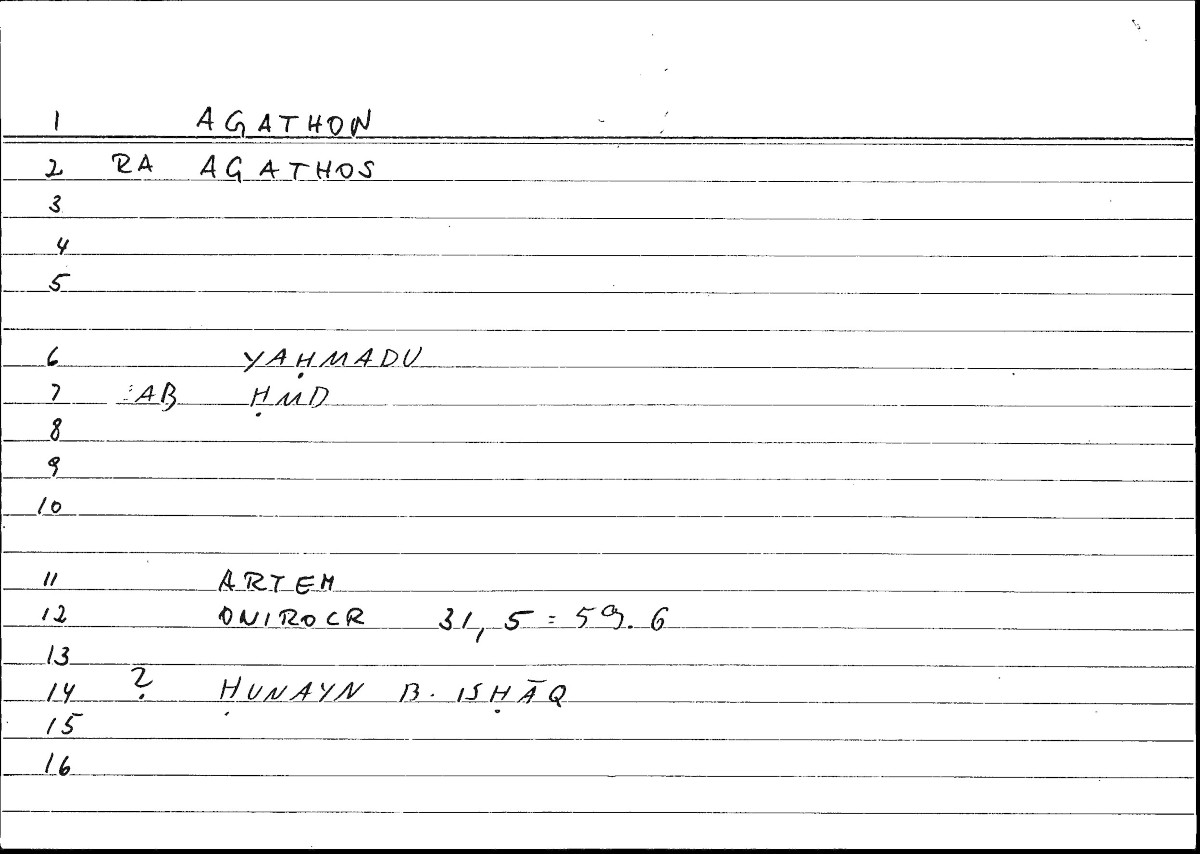 1 AGATHON
2 RA AGATHOS
3
4
5
6 YAḤMADU
7 :AB ḤMD
8
9
10
11 ARTEM
12 ONIROCR 31,5 = 59.6
13
14 ? ḤUNAYN B. ISḤĀQ
15
16